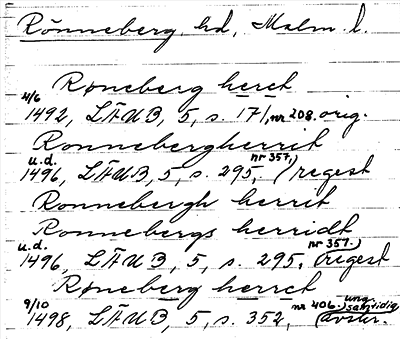 Rönneberg hd, Malm. l.
Roneberg heret
4/6
1492, LÄUB, 5, s. 171, nr 208. orig.
Ronnebergherrit
u.d.
1496, LÄUB, 5, s. 295, nr 357,) regest
Ronnebergh herrit
Ronnebergs herridt
u.d.
1496, LÄUB, 5, s. 295, nr 357.) (regest
Røneberg herret
9/10
1498, LÄUB, 5, s. 352, nr 406.) ung. samtidig
(avskr.